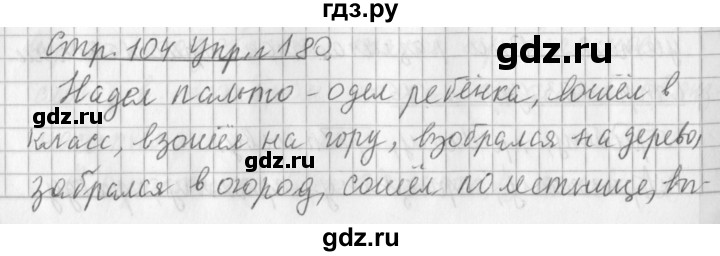 гдз.ру
Стр. 104 упр. 180.
Надел пальто - одел ребёнка, вошёл в
класс, взошёл на гору, взобрался на дерево,
забрался в огород, сошёл по лестнице, вы-
gdz.ru
gdz.ru